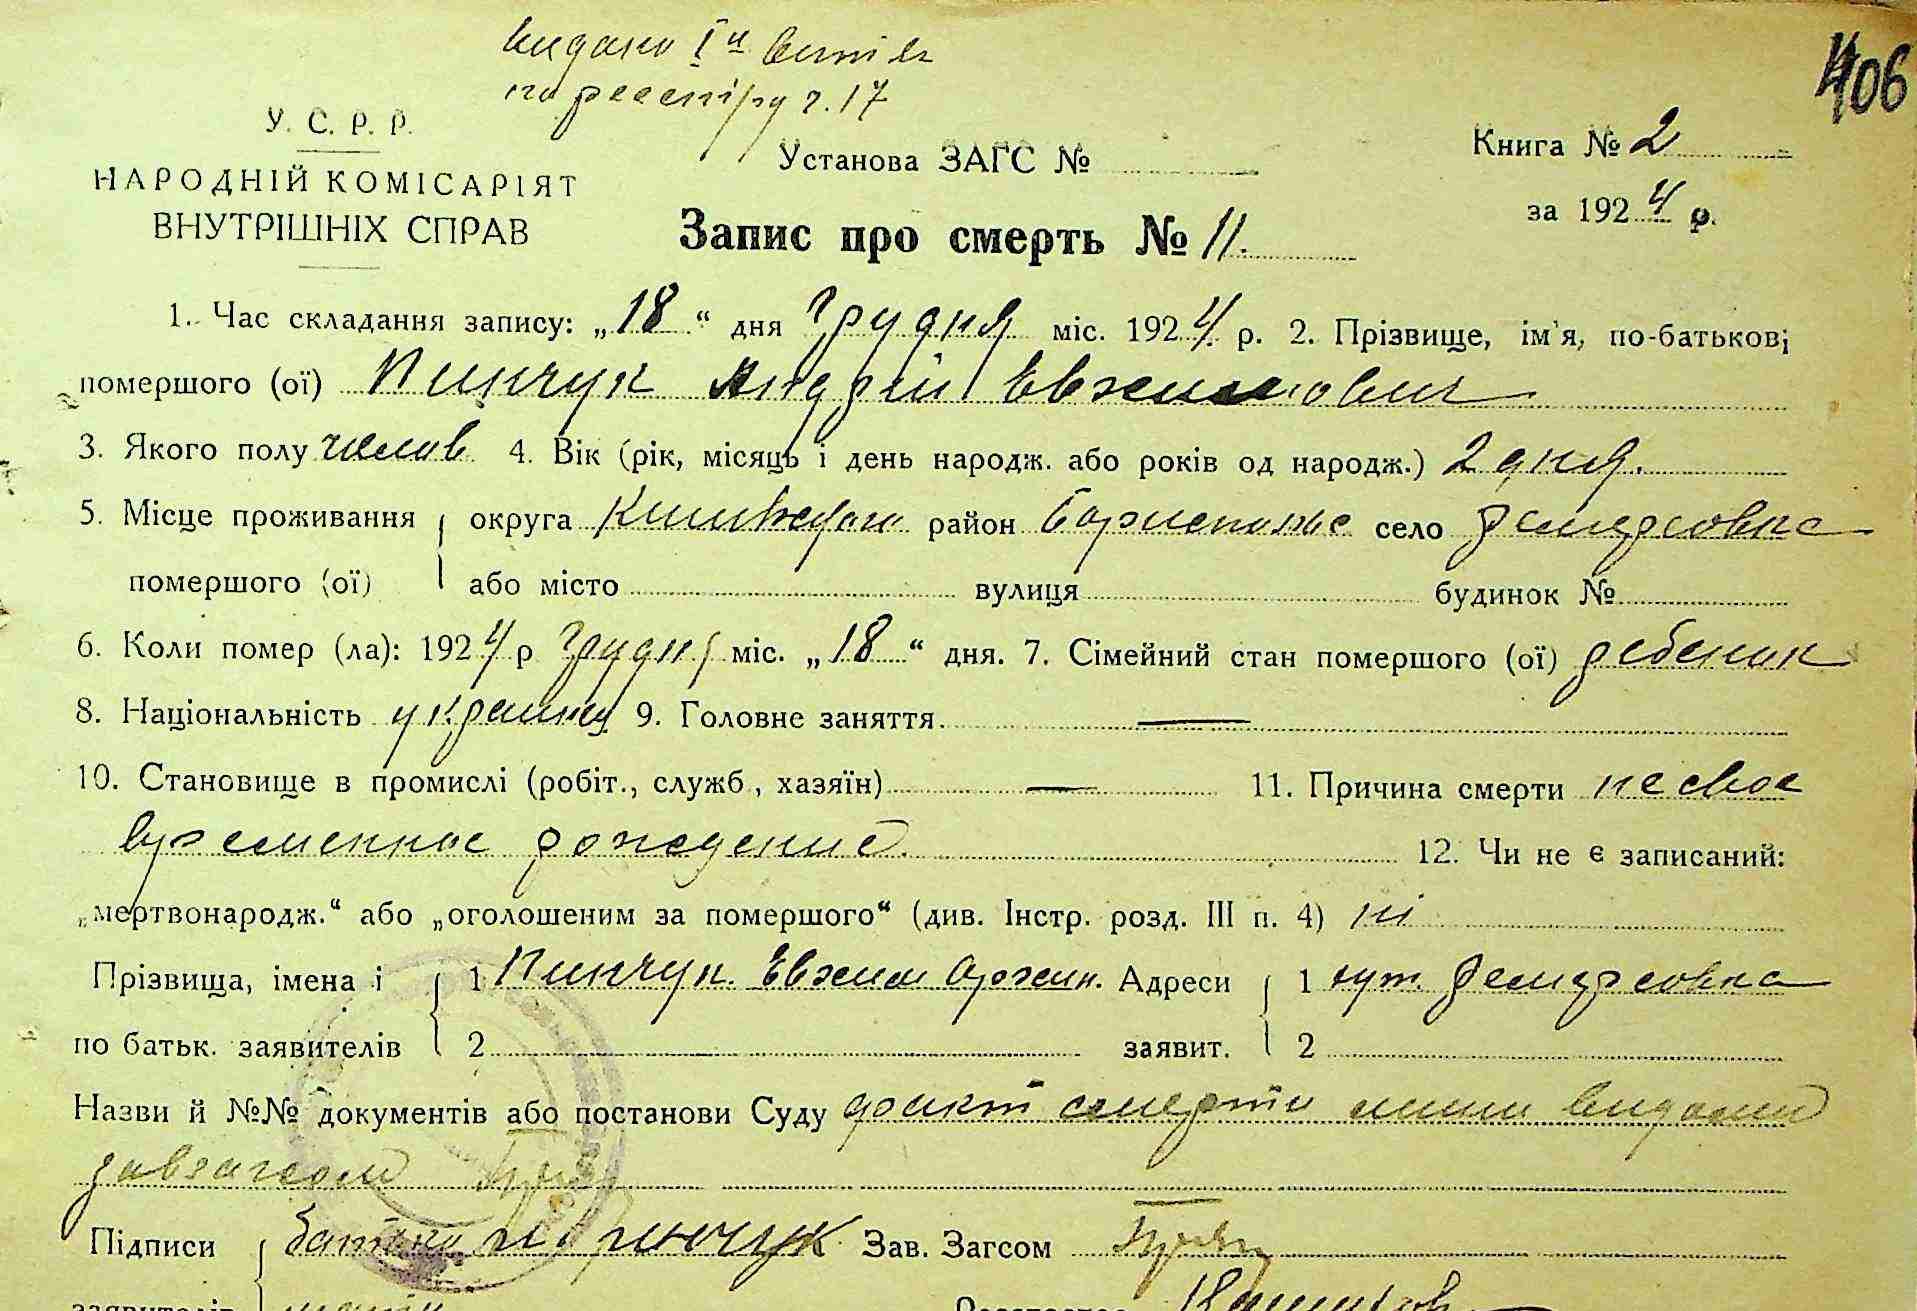 видано Iй витяг
по реєстру ч. 17
406
У. С. Р. Р.
НАРОДНІЙ КОМІСАРІЯТ
ВНУТРІШНІХ СПРАВ
Установа ЗАГС №
Книга № 2
за 1924 р.
Запис про смерть № 11.
1. Час складання запису: „18“ дня Грудня міс. 1924 р. 2. Прізвище, ім'я, по-батькові
помершого (ої) Пинчук Андрій Евхимович
3. Якого полу челов. 4. Вік (рік, місяць і день народж. або років од народж.) 2 дня.
5. Місце проживання округа район село
помершого (ої) або місто вулиця будинок №
6. Коли помер (ла): 1924 р Грудня міс. „18“ дня. 7. Сімейний стан помершого (ої) ребенок
8. Національність украинец 9. Головне заняття. —
10. Становище в промислі (робіт., служб., хазяїн) — 11. Причина смерти несвое
временное рождение. 12. Чи не є записаний:
„мертвонародж.“ або „оголошеним за помершого“ (див. Інстр. розд. III п. 4) ні
Прізвища, імена і 1 Пинчук Евхим Адреси 1 хут.
по батьк. заявителів 2 заявит. 2
Назви й №№ документів або постанови Суду факт смерти
завзагсом
Підписи батько Пинчук Зав. Загсом
заявителів